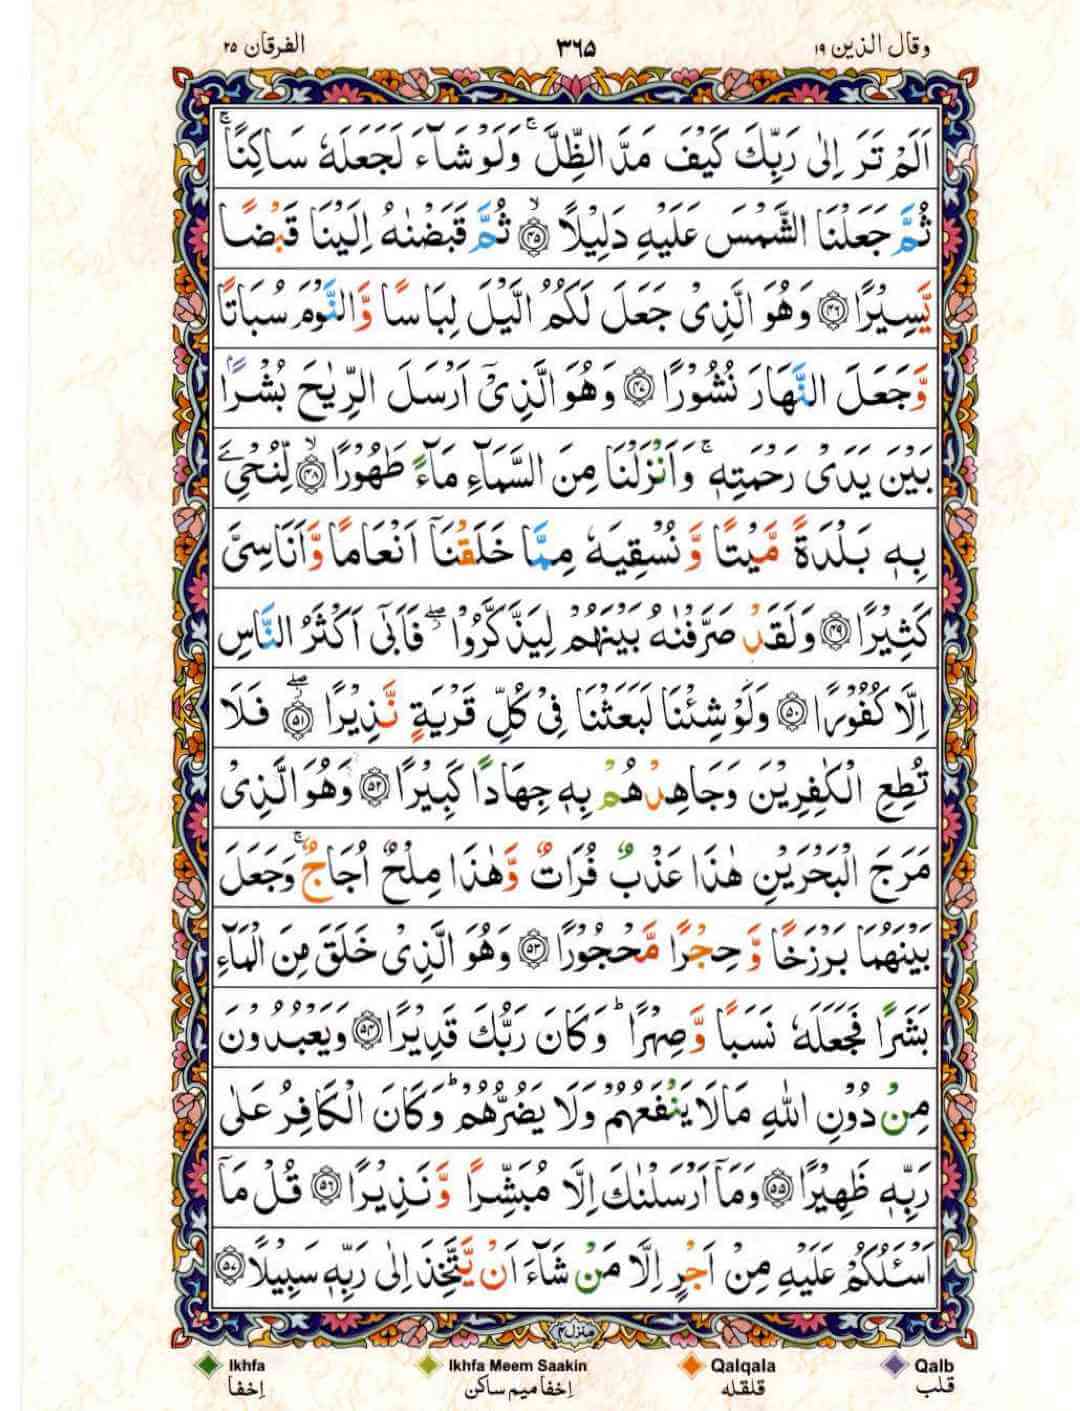 وقال الذين ١٩
٣٦٥
الفرقان ٢٥
اَلَمْ تَرَ اِلٰى رَبِّكَ كَيْفَ مَدَّ الظِّلَّ ۚ وَلَوْ شَآءَ لَجَعَلَهٗ سَاكِنًا ۚ
ثُمَّ جَعَلْنَا الشَّمْسَ عَلَيْهِ دَلِيْلًا ۙ۝٤٥ ثُمَّ قَبَضْنٰهُ اِلَيْنَا قَبْضًا
يَّسِيْرًا ۝٤٦ وَهُوَ الَّذِىْ جَعَلَ لَكُمُ الَّيْلَ لِبَاسًا وَّالنَّوْمَ سُبَاتًا
وَّجَعَلَ النَّهَارَ نُشُوْرًا ۝٤٧ وَهُوَ الَّذِىْۤ اَرْسَلَ الرِّيٰحَ بُشْرًۢا
بَيْنَ يَدَىْ رَحْمَتِهٖ ۚ وَاَنْزَلْنَا مِنَ السَّمَآءِ مَآءً طَهُوْرًا ۙ۝٤٨ لِّنُحْیِۦَ
بِهٖ بَلْدَةً مَّيْتًا وَّنُسْقِيَهٗ مِمَّا خَلَقْنَاۤ اَنْعَامًا وَّاَنَاسِىَّ
كَثِيْرًا ۝٤٩ وَلَقَدْ صَرَّفْنٰهُ بَيْنَهُمْ لِيَذَّكَّرُوْا ۖ فَاَبٰٓى اَكْثَرُ النَّاسِ
اِلَّا كُفُوْرًا ۝٥٠ وَلَوْ شِئْنَا لَبَعَثْنَا فِىْ كُلِّ قَرْيَةٍ نَّذِيْرًا ۖ۝٥١ فَلَا
تُطِعِ الْكٰفِرِيْنَ وَجَاهِدْهُمْ بِهٖ جِهَادًا كَبِيْرًا ۝٥٢ وَهُوَ الَّذِىْ
مَرَجَ الْبَحْرَيْنِ هٰذَا عَذْبٌ فُرَاتٌ وَّهٰذَا مِلْحٌ اُجَاجٌ ۚ وَجَعَلَ
بَيْنَهُمَا بَرْزَخًا وَّحِجْرًا مَّحْجُوْرًا ۝٥٣ وَهُوَ الَّذِىْ خَلَقَ مِنَ الْمَآءِ
بَشَرًا فَجَعَلَهٗ نَسَبًا وَّصِهْرًا ؕ وَكَانَ رَبُّكَ قَدِيْرًا ۝٥٤ وَيَعْبُدُوْنَ
مِنْ دُوْنِ اللّٰهِ مَا لَا يَنْفَعُهُمْ وَلَا يَضُرُّهُمْ ؕ وَكَانَ الْكَافِرُ عَلٰى
رَبِّهٖ ظَهِيْرًا ۝٥٥ وَمَاۤ اَرْسَلْنٰكَ اِلَّا مُبَشِّرًا وَّنَذِيْرًا ۝٥٦ قُلْ مَاۤ
اَسْـَٔلُكُمْ عَلَيْهِ مِنْ اَجْرٍ اِلَّا مَنْ شَآءَ اَنْ يَّتَّخِذَ اِلٰى رَبِّهٖ سَبِيْلًا ۝٥٧
منزل ٤
Ikhfa
Ikhfa Meem Saakin
Qalqala
Qalb
اِخفا
اِخفا میم ساکن
قلقله
قلب